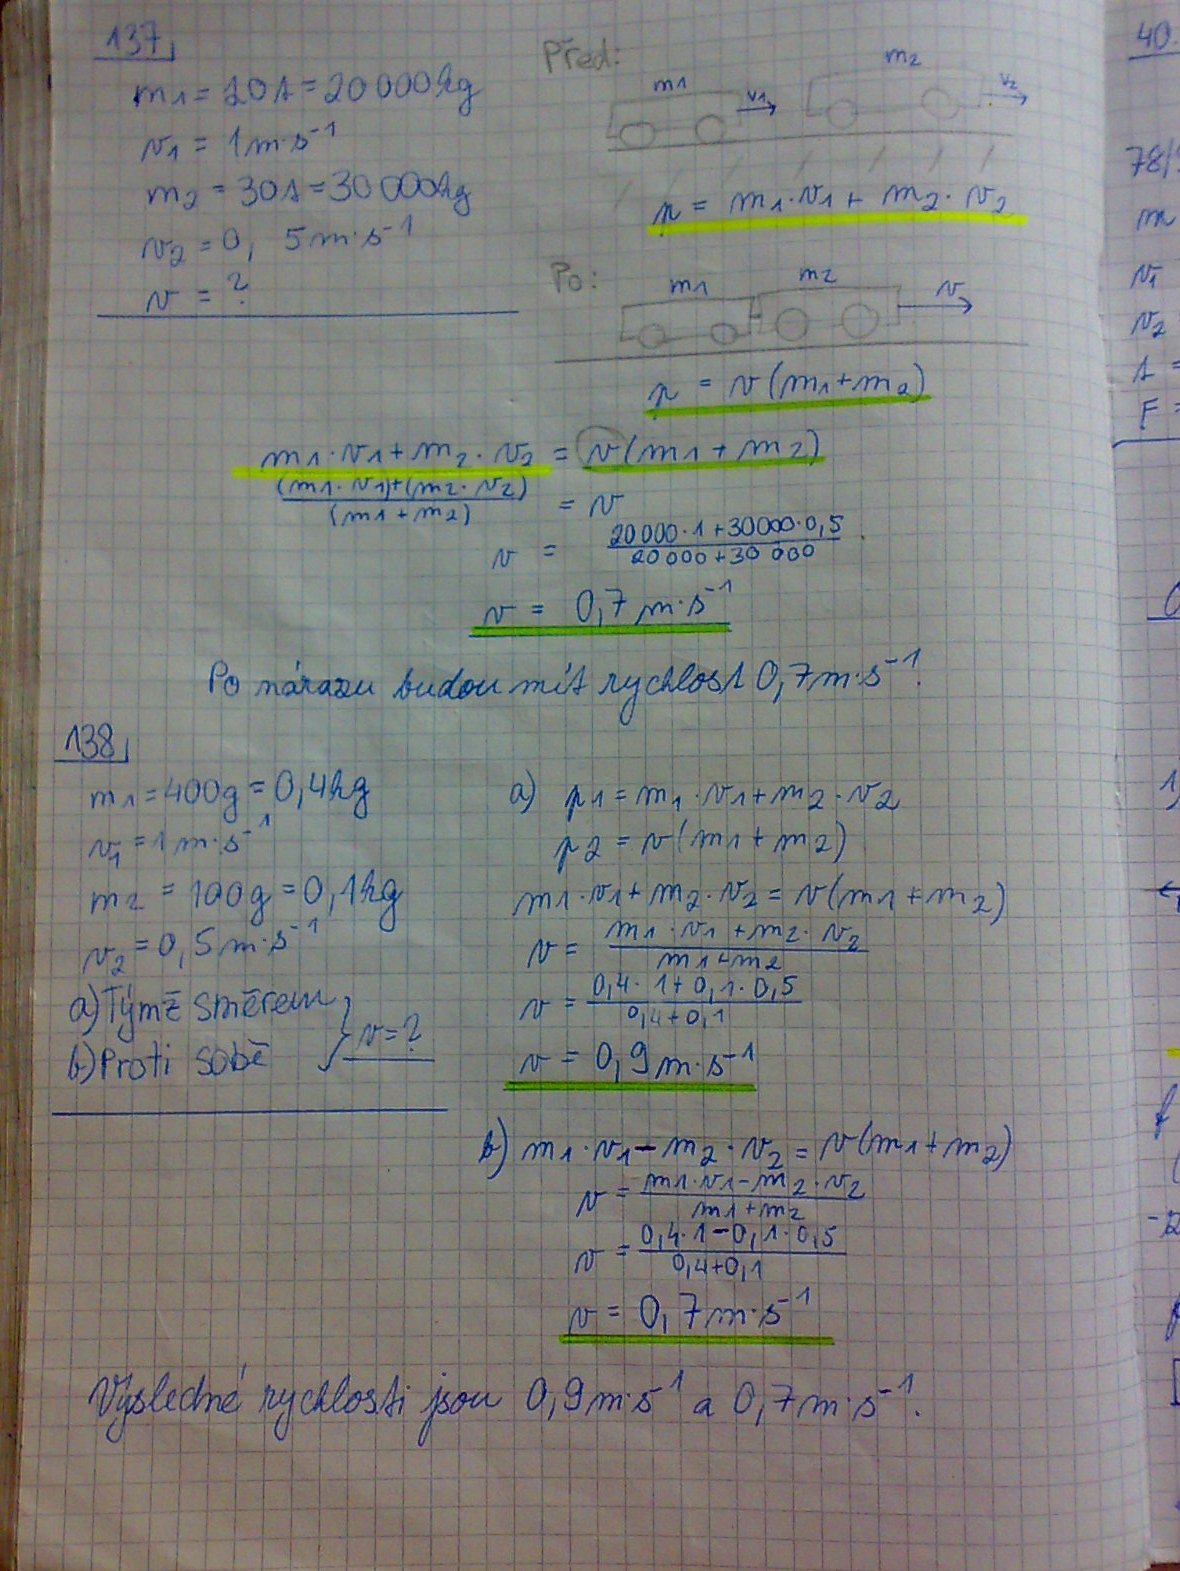 137
m1 = 20t = 20 000kg
v1 = 1m·s⁻¹
m2 = 30t = 30 000kg
v2 = 0, 5m·s⁻¹
v = ?
Před:
m1 v1 m2 v2
p = m1·v1 + m2·v2
Po:
m1 m2 v
p = v(m1+m2)
m1·v1 + m2·v2 = v(m1+m2)
(m1·v1)+(m2·v2)
(m1+m2)
= v
v = 20 000·1+30000·0,5
20 000+30 000
v = 0,7m·s⁻¹
Po nárazu budou mít rychlost 0,7m·s⁻¹.
138
m1 = 400g = 0,4kg
v1 = 1m·s⁻¹
m2 = 100g = 0,1kg
v2 = 0,5m·s⁻¹
a) Týmž směrem
b) Proti sobě
v = ?
a) p1 = m1·v1+m2·v2
p2 = v(m1+m2)
m1·v1+m2·v2 = v(m1+m2)
v = m1·v1+m2·v2
m1+m2
v = 0,4·1+0,1·0,5
0,4+0,1
v = 0,9m·s⁻¹
b) m1·v1−m2·v2 = v(m1+m2)
v = m1·v1−m2·v2
m1+m2
v = 0,4·1−0,1·0,5
0,4+0,1
v = 0,7m·s⁻¹
Výsledné rychlosti jsou 0,9m·s⁻¹ a 0,7m·s⁻¹.
40.
78/
m
v1
v2
t =
F =